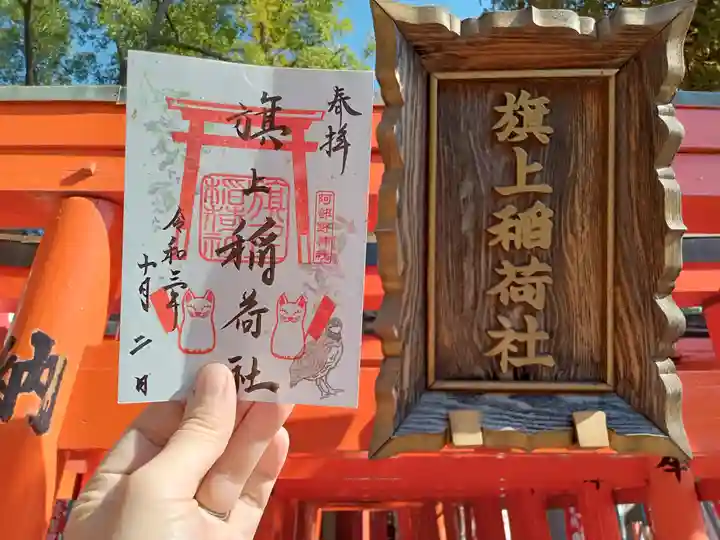 奉拝
旗上稲荷社
令和三年
十月二日
旗上稲荷社
阿部野神社
旗上稲荷社
納